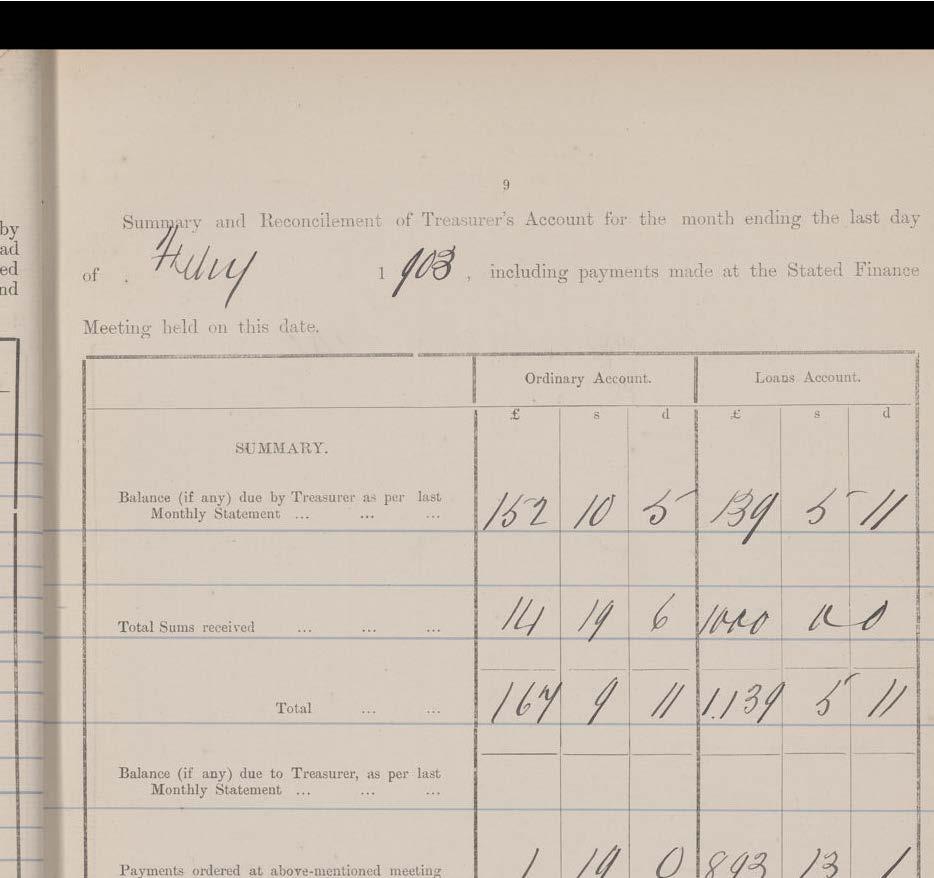 9
by
ad
ed
nd
Summary and Reconcilement of Treasurer's Account for the month ending the last day
of . Feby 1903, including payments made at the Stated Finance
Meeting held on this date.
Ordinary Account. Loans Account.
£ s d £ s d
SUMMARY.
Balance (if any) due by Treasurer as per last
Monthly Statement ... ... ... 152 10 5 139 5 11
Total Sums received ... ... ... 14 19 6 1000 0 0
Total ... ... 167 9 11 1.139 5 11
Balance (if any) due to Treasurer, as per last
Monthly Statement ... ... ...
Payments ordered at above-mentioned meeting 1 19 0 893 13 1